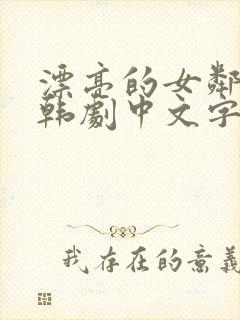 漂亮的女鄰
韩劇中文字
我存在的意義